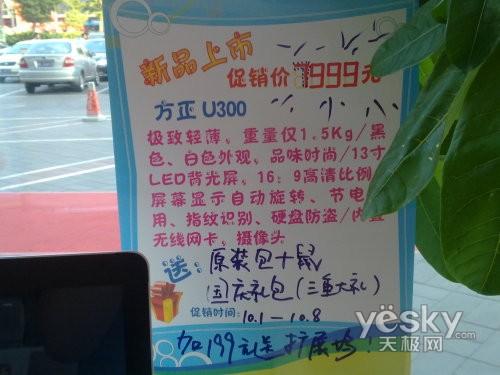 新品上市
促销价 1999元
方正 U300
极致轻薄，重量仅1.5Kg/黑
色、白色外观，品味时尚/13寸
LED背光屏，16：9高清比例
屏幕显示自动旋转、节电
用、指纹识别、硬盘防盗/内置
无线网卡，摄像头
送：原装包+鼠
国庆礼包(三重大礼)
促销时间：10.1—10.8
加199元送扩展坞！
yësky
天极网